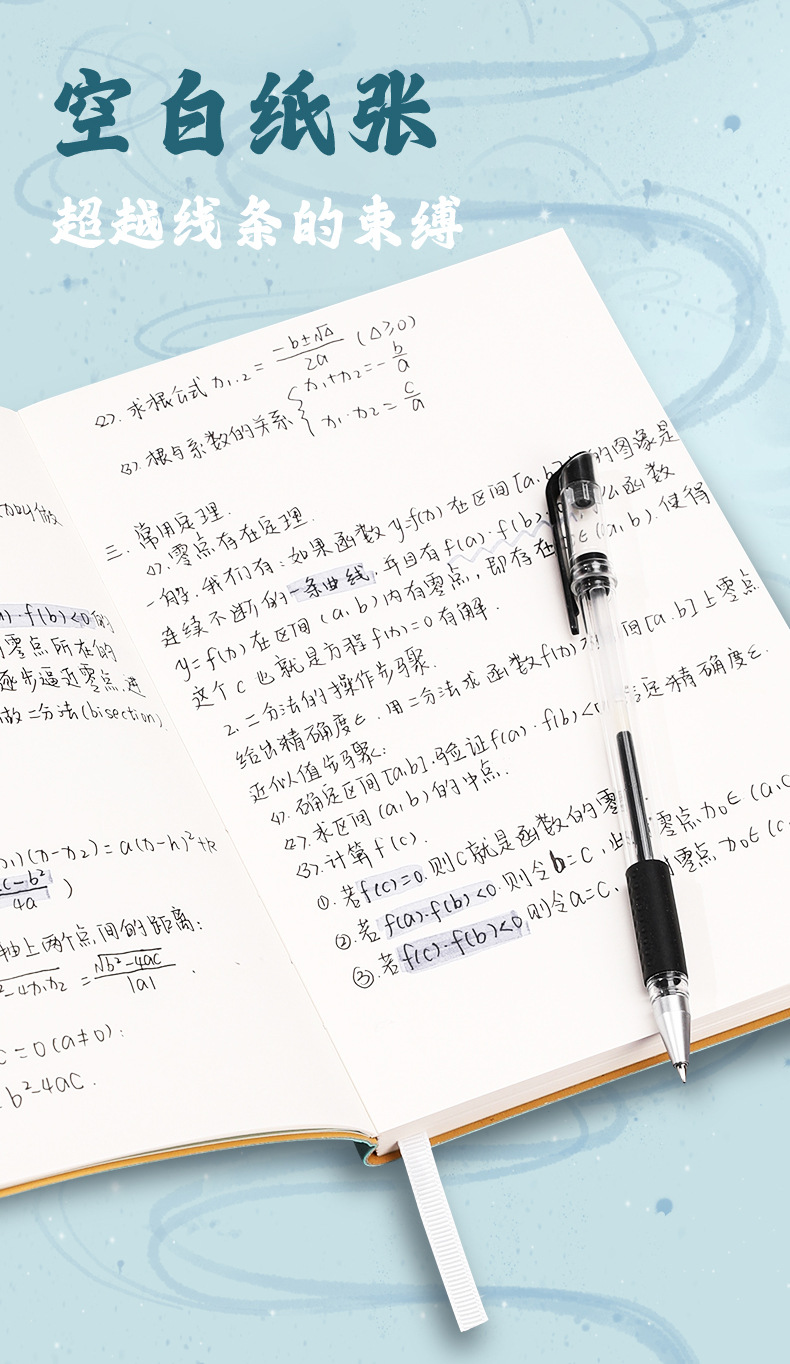 空白纸张
超越线条的束缚
(2). 求根公式 x₁.₂ = (-b±√Δ)/2a (Δ≥0)
(3). 根与系数的关系 { x₁+x₂=-b/a
x₁·x₂=c/a
三、常用定理.
(1).零点存在定理.
一般.我们有:如果函数y=f(x)在区间[a,b]的图像是
连续不断的一条曲线,并且有f(a)·f(b)么函数
y=f(x)在区间(a,b)内有零点,即存在∈(a,b).使得
这个c也就是方程f(x)=0有解.
2.二分法的操作步骤.
给出精确度ε.用二分法求函数f(x)间[a,b]上零点
近似值步骤:
(1).确定区间[a,b].验证f(a)·f(b)<定精确度ε.
(2).求区间(a,b)的中点.
(3).计算f(c).
①.若f(c)=0.则c就是函数的零
②.若f(a)·f(b)<0.则令b=c,此零点x₀∈(a,c
③.若f(c)·f(b)<0则令a=c,零点x₀∈(c,
做
)·f(b)<0的
零点所在的
逐步逼近零点,进
做二分法(bisection).
)(x-x₂)=a(x-h)²+k
c-b²/4a )
轴上两个点间的距离:
-4x₁x₂ = √b²-4ac/|a| .
c=0(a≠0):
b²-4ac.